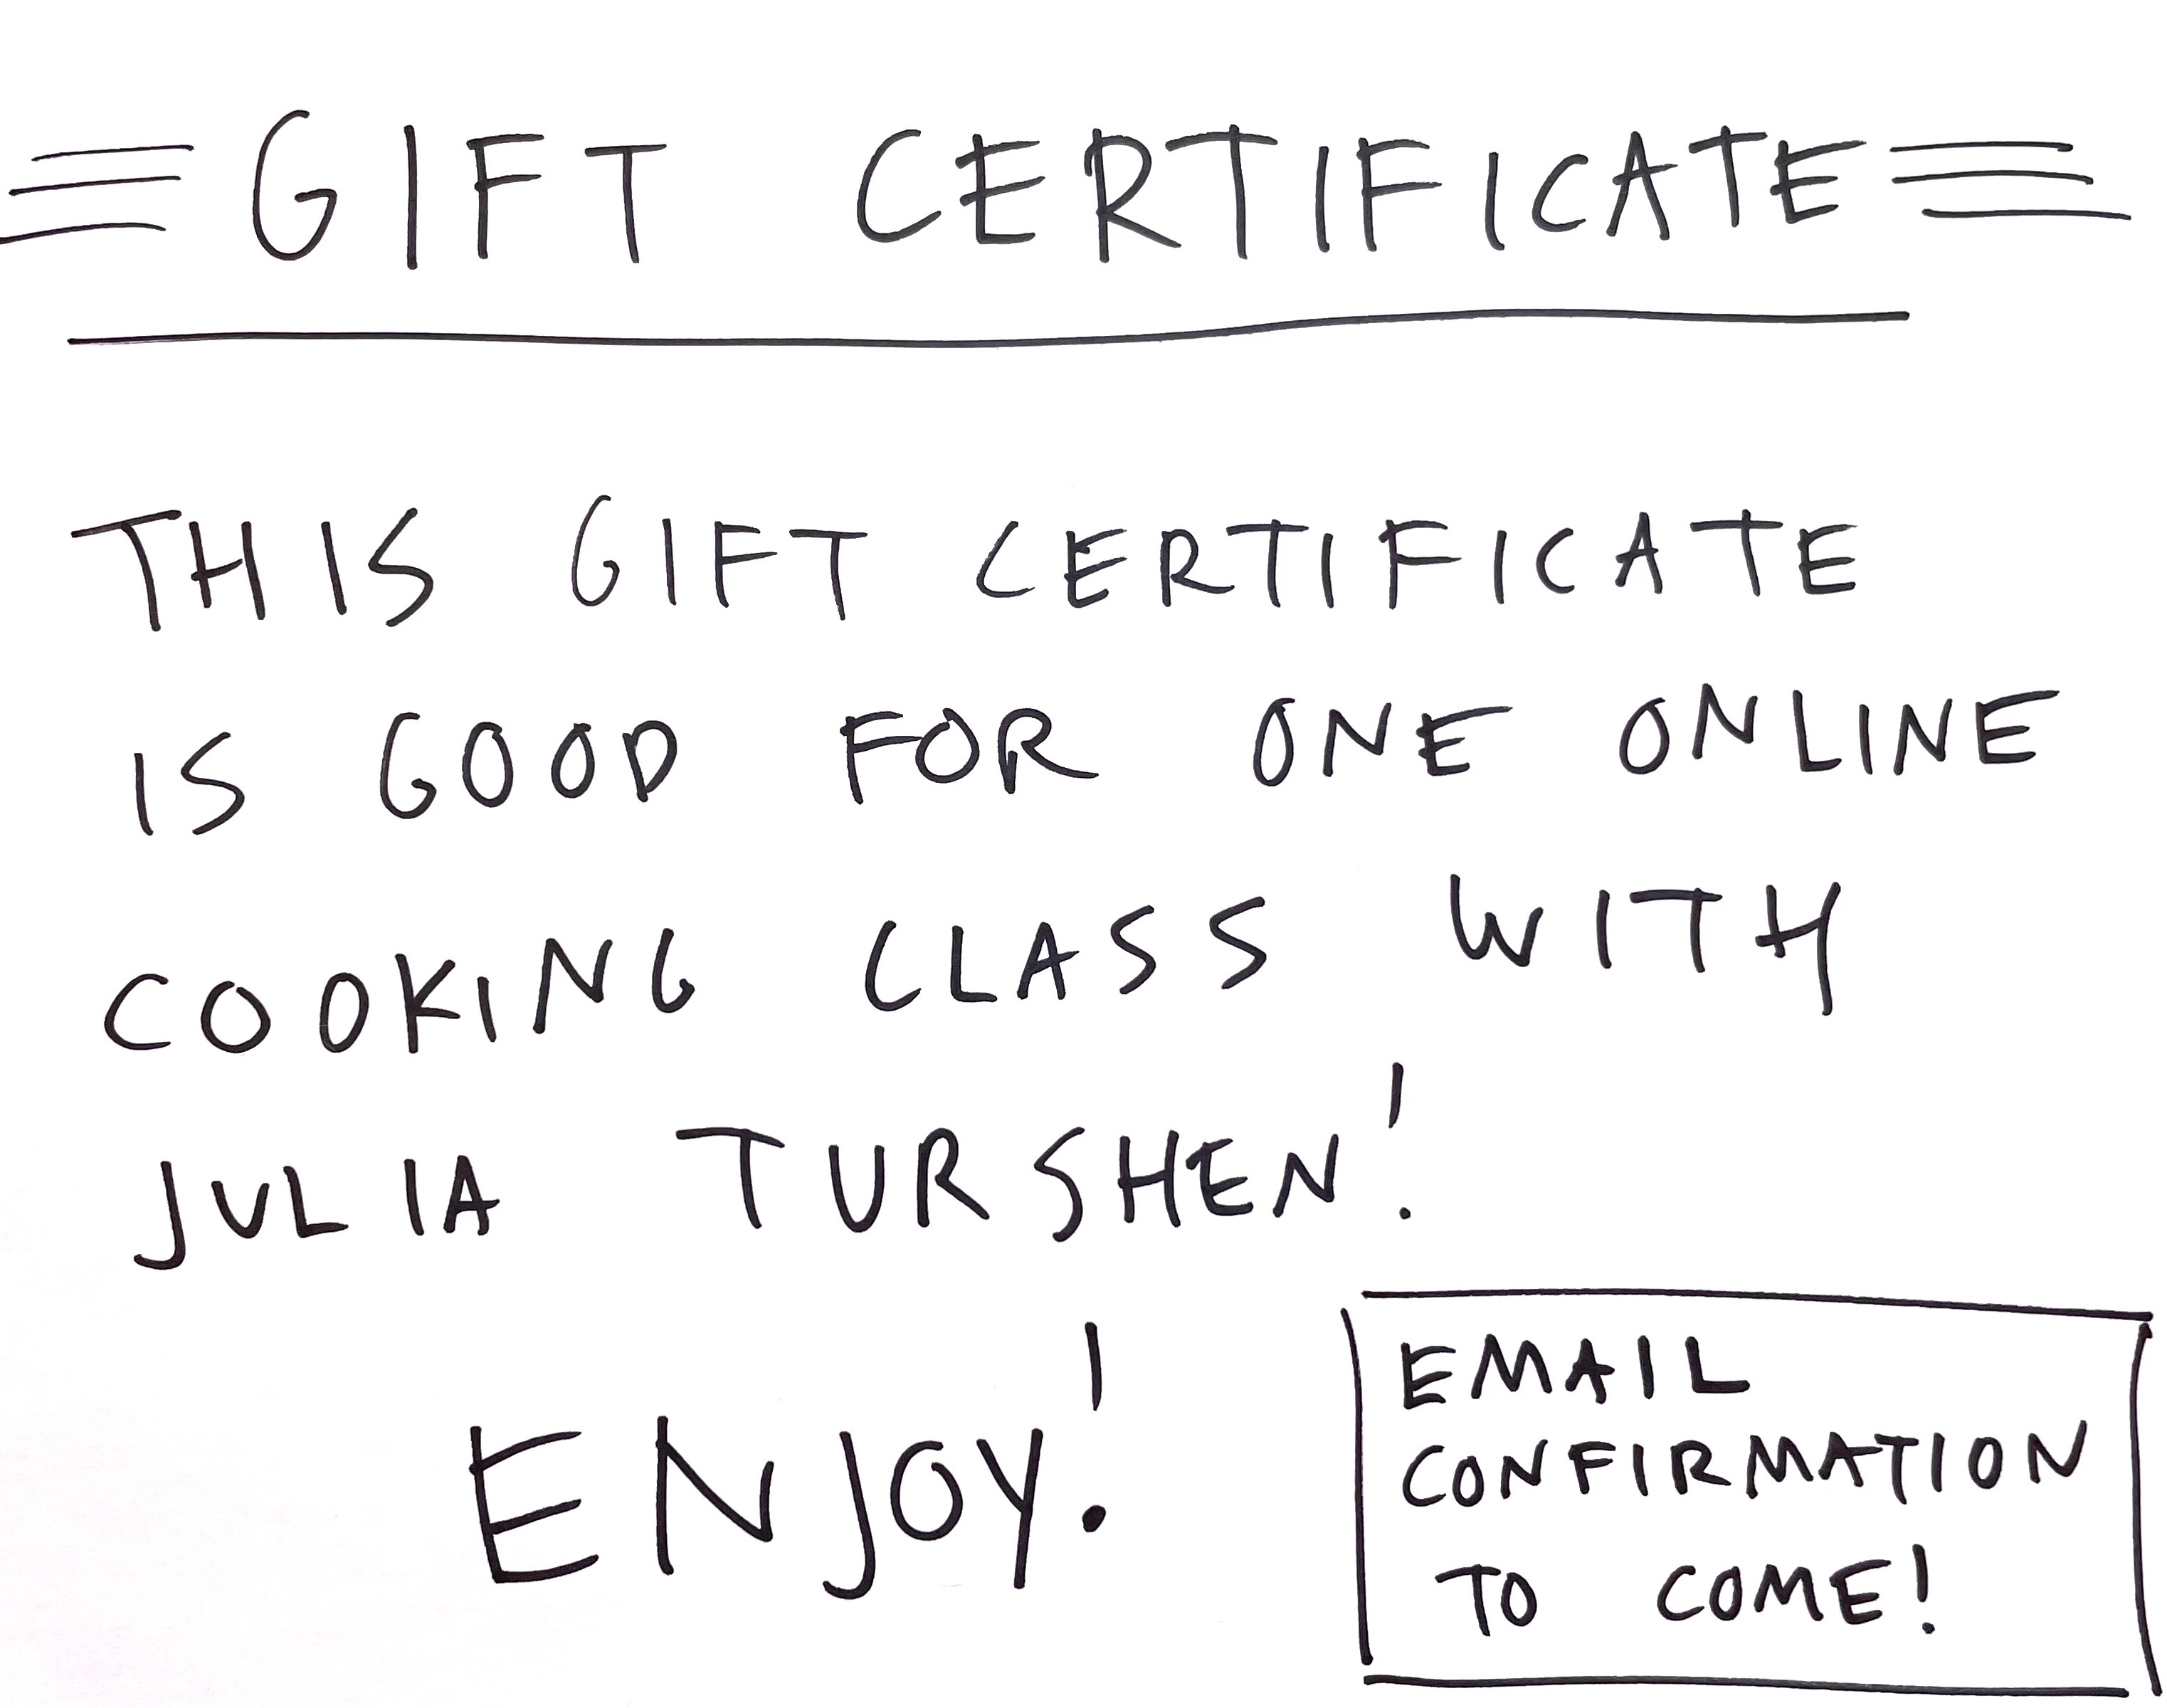 GIFT CERTIFICATE
THIS GIFT CERTIFICATE
IS GOOD FOR ONE ONLINE
COOKING CLASS WITH
JULIA TURSHEN!
ENJOY!
EMAIL
CONFIRMATION
TO COME!